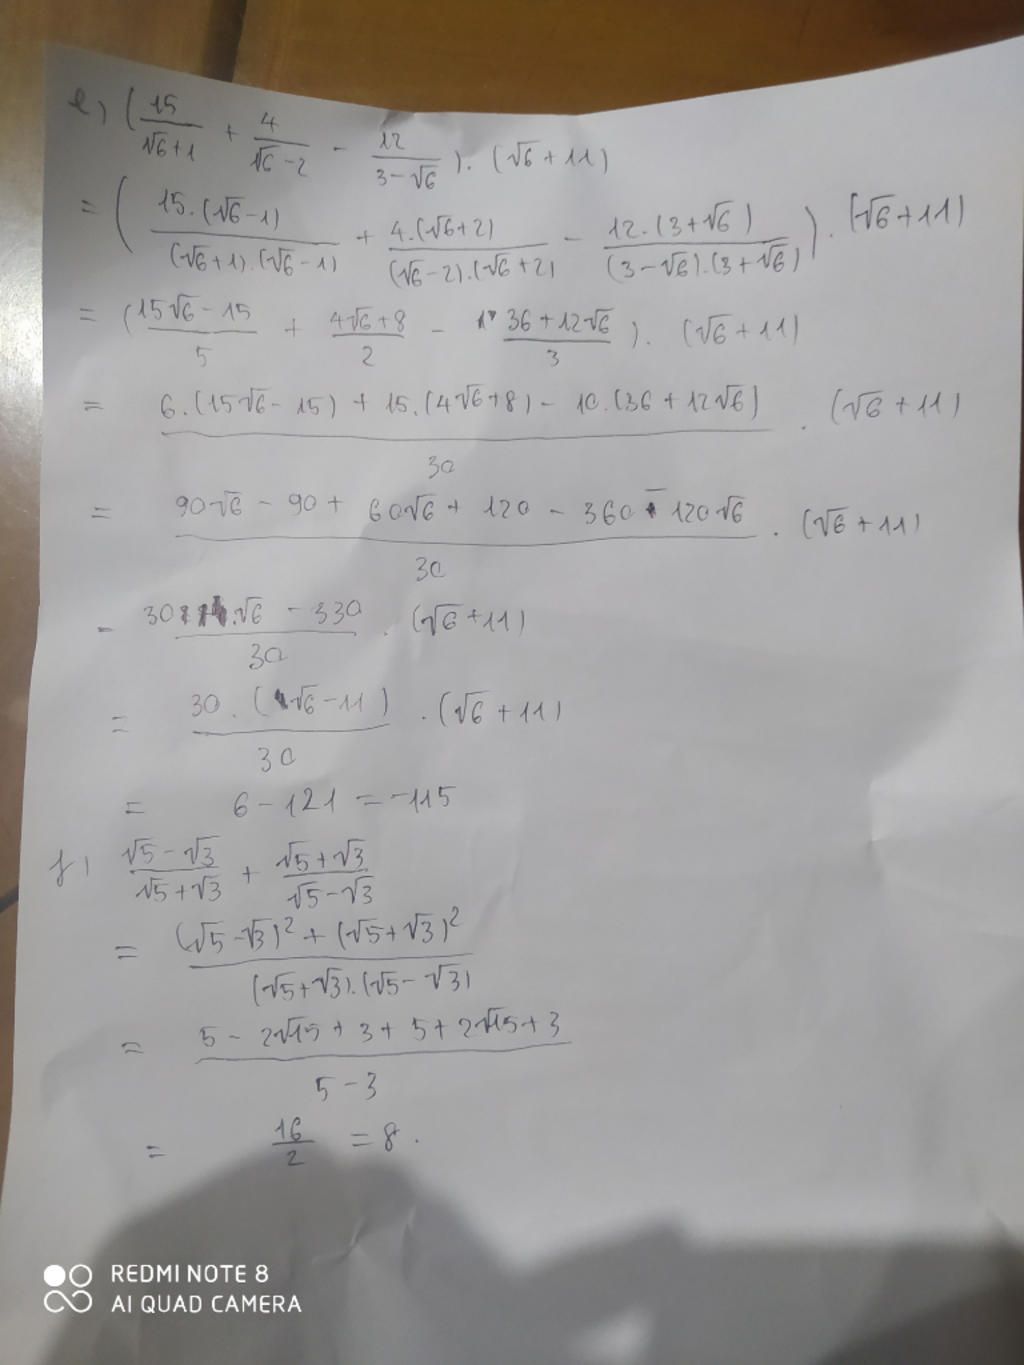 e) (15/(√6+1) + 4/(√6-2) - 12/(3-√6)). (√6+11)
= (15.(√6-1)/((√6+1).(√6-1)) + 4.(√6+2)/((√6-2).(√6+2)) - 12.(3+√6)/((3-√6).(3+√6))). (√6+11)
= ((15√6-15)/5 + (4√6+8)/2 - (36+12√6)/3). (√6+11)
= (6.(15√6-15) + 15.(4√6+8) - 10.(36+12√6))/30 . (√6+11)
= (90√6 - 90 + 60√6 + 120 - 360 - 120√6)/30 . (√6+11)
= (30.√6 - 330)/30 . (√6+11)
= 30.(√6-11)/30 . (√6+11)
= 6-121 = -115
f) (√5-√3)/(√5+√3) + (√5+√3)/(√5-√3)
= ((√5-√3)² + (√5+√3)²)/((√5+√3).(√5-√3))
= (5 - 2√15 + 3 + 5 + 2√15 + 3)/(5-3)
= 16/2 = 8.
REDMI NOTE 8
AI QUAD CAMERA